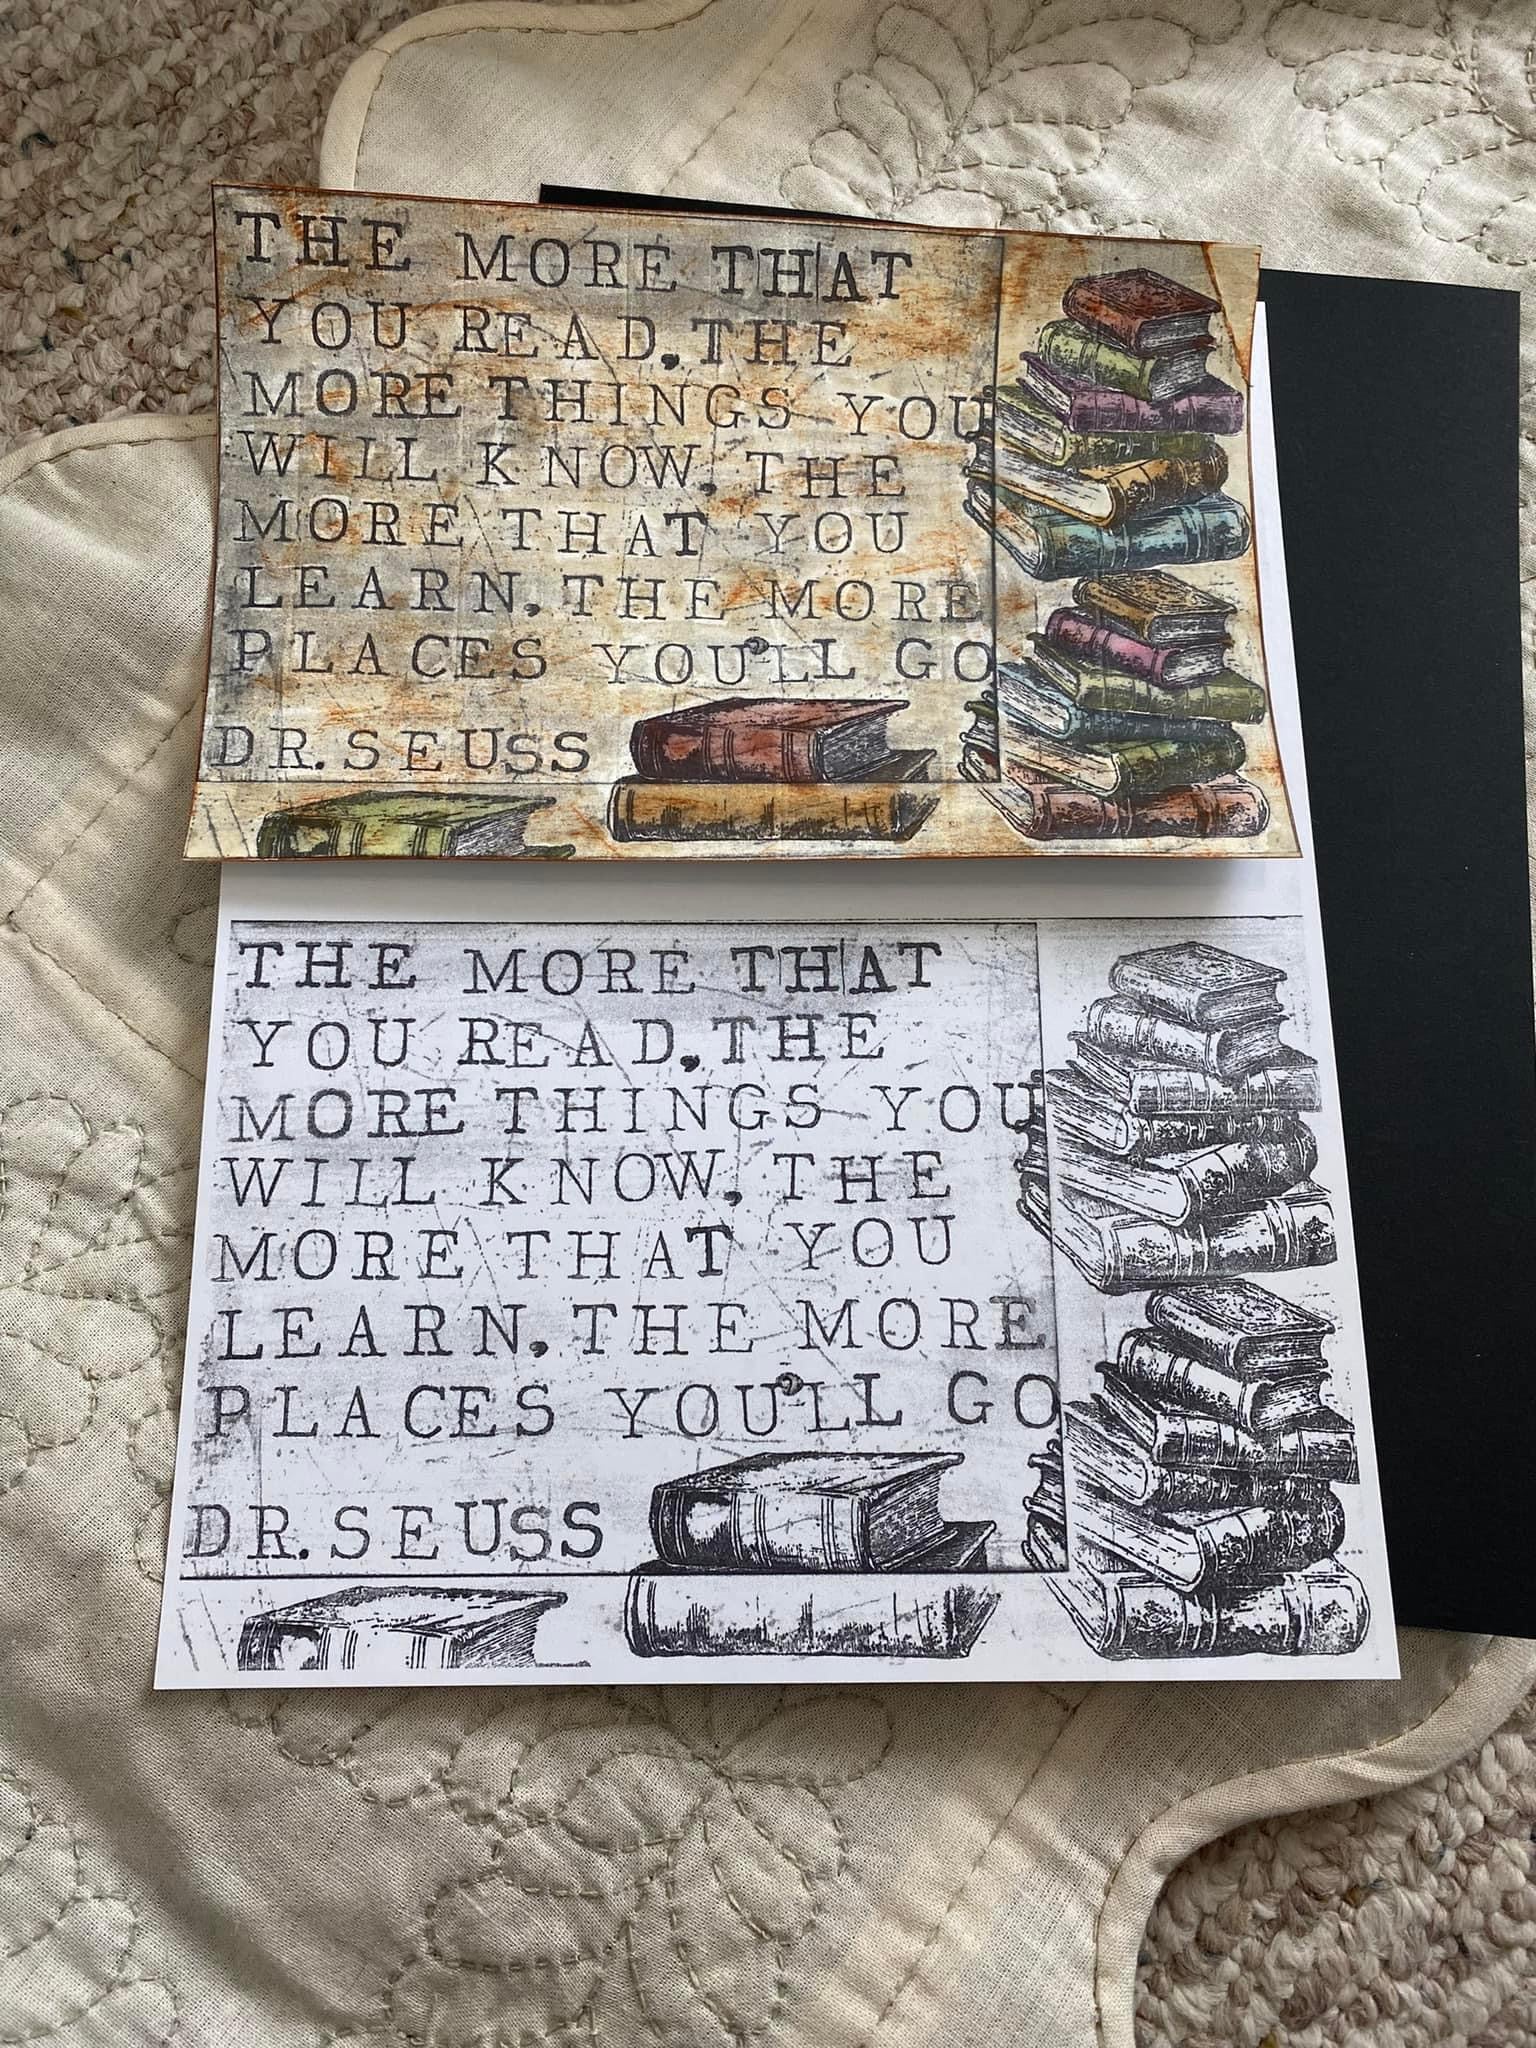 THE MORE THAT
YOU READ, THE
MORE THINGS YOU
WILL KNOW, THE
MORE THAT YOU
LEARN, THE MORE
PLACES YOU'LL GO
DR. SEUSS
THE MORE THAT
YOU READ, THE
MORE THINGS YOU
WILL KNOW, THE
MORE THAT YOU
LEARN, THE MORE
PLACES YOU'LL GO
DR. SEUSS